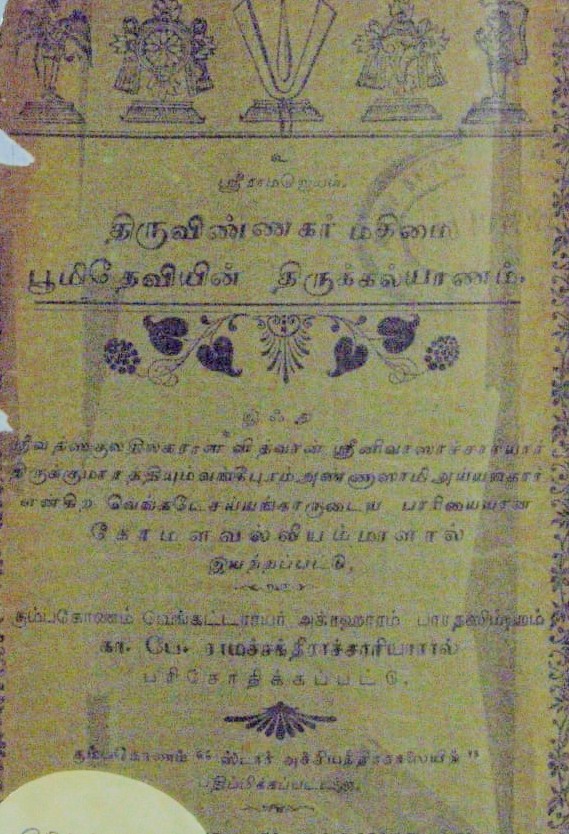 உ
ஸ்ரீராமஜெயம்.
திருவிண்ணகர் மகிமை
பூமிதேவியின் திருக்கல்யாணம்.
இஃது
ஸ்ரீவத்ஸகுலதிலகரான வித்வான் ஸ்ரீனிவாஸாச்சாரியார்
திருக்குமாரத்தியும் வங்கீபுரம் அண்ணாஸாமி அய்யங்கார்
என்கிற வேங்கடேசய்யங்காருடைய பாரியையான
கோமளவல்லியம்மாளால்
இயற்றப்பட்டு,
கும்பகோணம் வேங்கட்டராயர் அக்ரஹாரம்
கா. பே. ராமச்சந்திராச்சாரியாரால்
பரிசோதிக்கப்பட்டு,
கும்பகோணம் "ஸ்டார் அச்சியந்திரசாலையில்"
பதிப்பிக்கப்பட்டது.